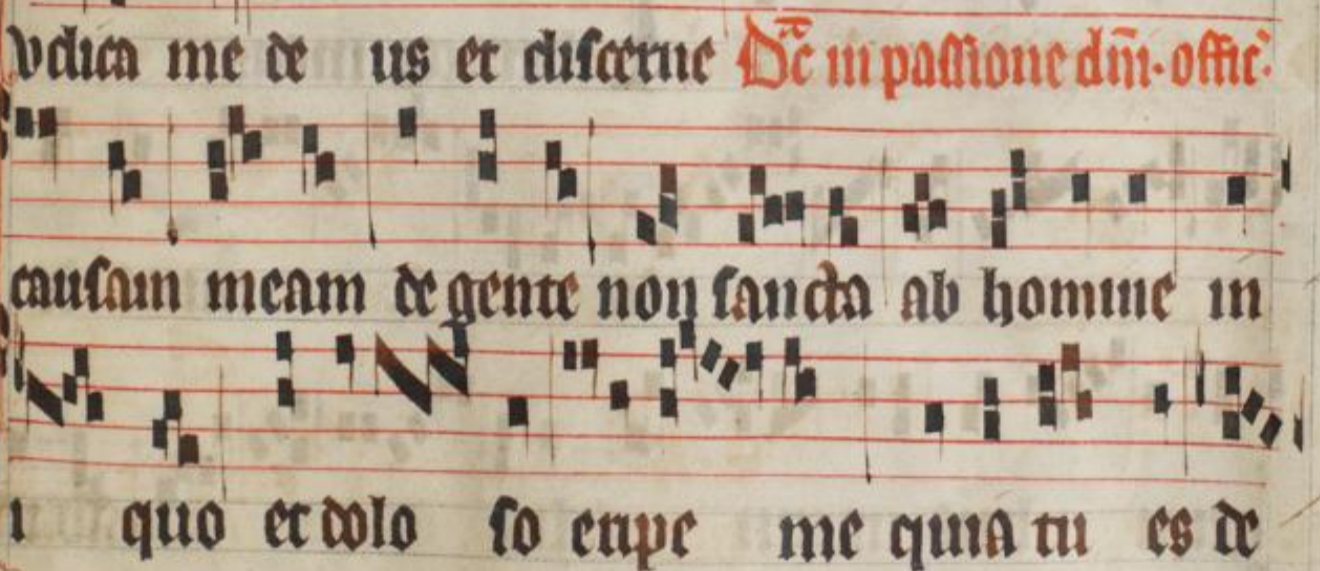 vdica me de us et discerne Dc̄ in passione dn̄i. offic̄.
causam meam de gente non sancta ab homine in
i quo et dolo so eripe me quia tu es de